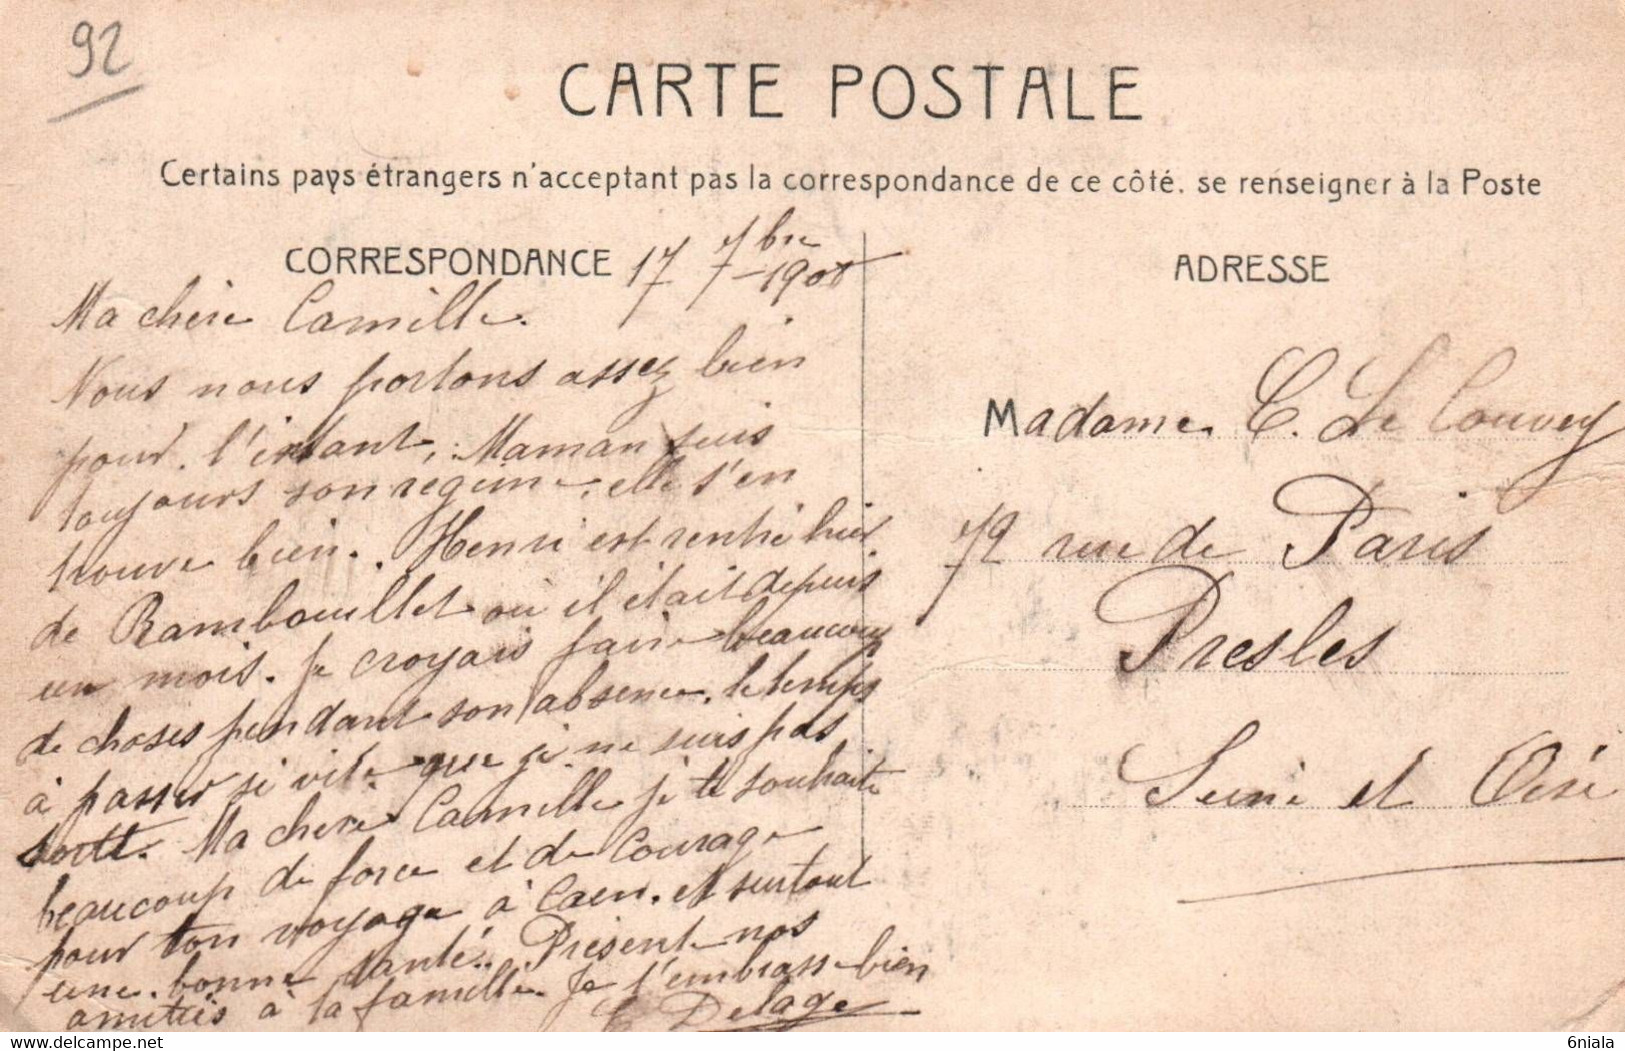 92
CARTE POSTALE
Certains pays étrangers n'acceptant pas la correspondance de ce côté. se renseigner à la Poste
CORRESPONDANCE
17 7bre 1908
Ma chère Camille.
Nous nous portons assez bien
pour l'instant, Maman suis
toujours son régime, elle s'en
trouve bien. Henri est rentré hier
de Rambouillet où il était depuis
un mois. Je croyais faire beaucoup
de choses pendant son absence, le temps
à passer si vite que je ne suis pas
sortit. Ma chère Camille je te souhaite
beaucoup de force et de courage
pour ton voyage à Caen. et surtout
une bonne santé. Présente nos
amitiés à la famille. Je t'embrasse bien
Delage
ADRESSE
Madame C. Le Couvey
72 rue de Paris
Presles
Seine et Oise
6niala